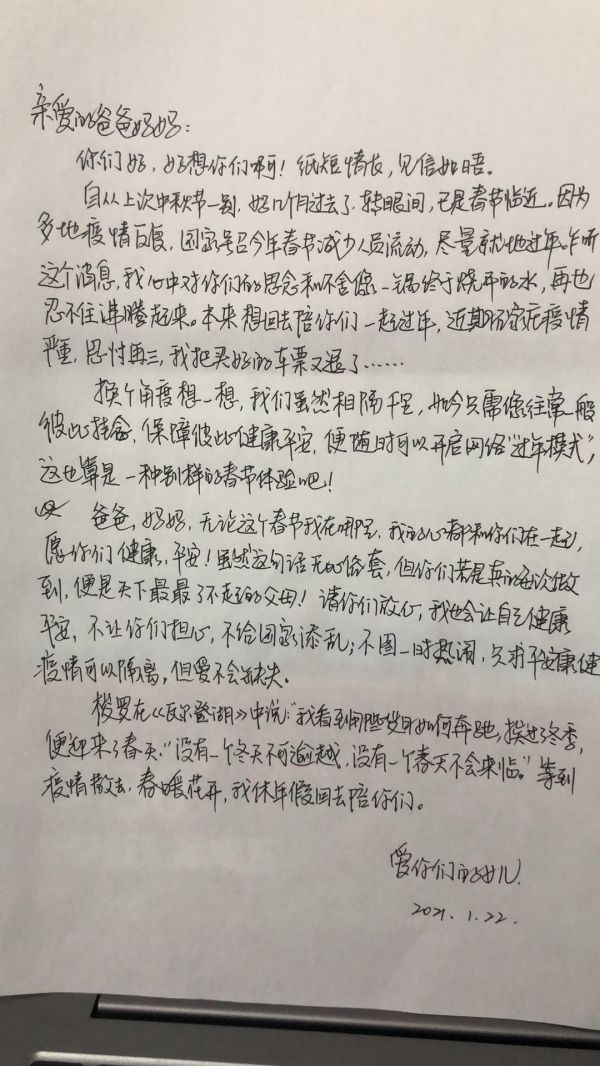 亲爱的爸爸妈妈：
你们好，好想你们啊！纸短情长，见信如晤。
自从上次中秋节一别，好几个月过去了，转眼间，已是春节临近。因为
多地疫情反复，国家号召今年春节减少人员流动，尽量就地过年。乍听
这个消息，我心中对你们的思念和不舍像一锅终于烧开的水，再也
忍不住沸腾起来。本来想回去陪你们一起过年，近期石家庄疫情
严重，思忖再三，我把买好的车票又退了……
换个角度想一想，我们虽然相隔千里，如今只需像往常一般
彼此挂念，保障彼此健康平安，便随时可以开启网络“过年模式”，
这也算是一种别样的春节体验吧！
爸爸，妈妈，无论这个春节我在哪里，我的心都和你们在一起，
愿你们健康，平安！虽然这句话无比俗套，但你们若是真的每次做
到，便是天下最最了不起的父母！请你们放心，我也会让自己健康
平安，不让你们担心，不给国家添乱；不图一时热闹，只求平安康健
疫情可以隔离，但爱不会缺失。
梭罗在《瓦尔登湖》中说：“我看到那些岁月如何奔驰，挨过了冬季，
便迎来了春天。”没有一个冬天不可逾越，没有一个春天不会来临。”等到
疫情散去，春暖花开，我休年假回去陪你们。
爱你们的女儿
2021.1.22.